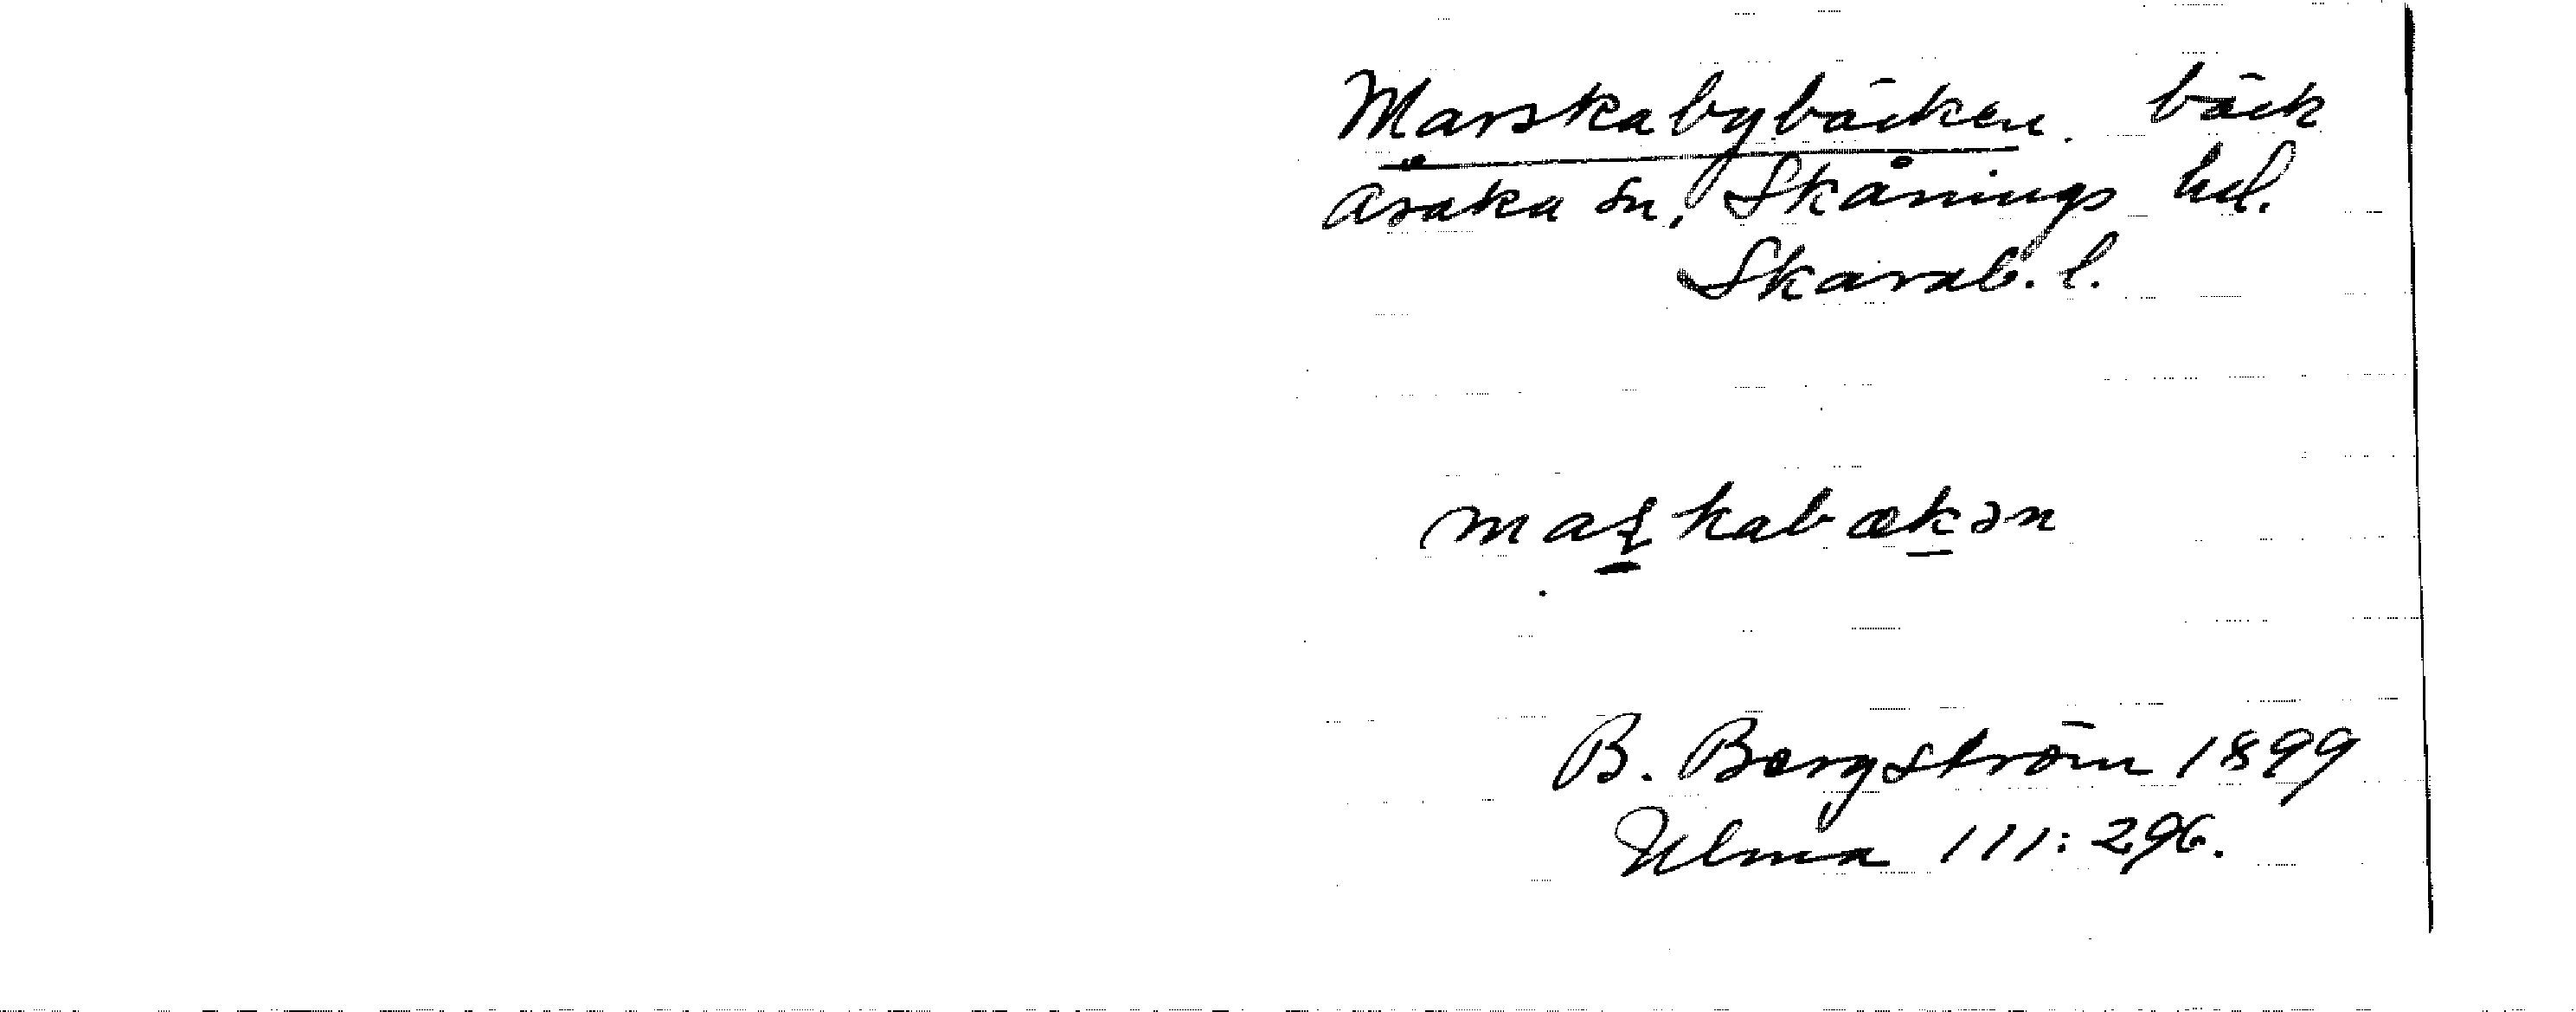 Marskabybäcken. bäck
Åsaka sn, Skånings hd.
Skarab. l.
maʂkabækən
B. Bergström 1899
Ulma 111:296.